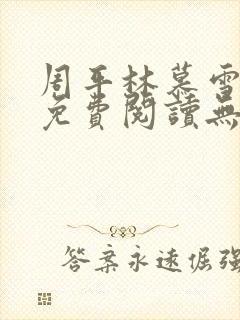 周平林慕雪
免費閱讀無
答案永遠倔強